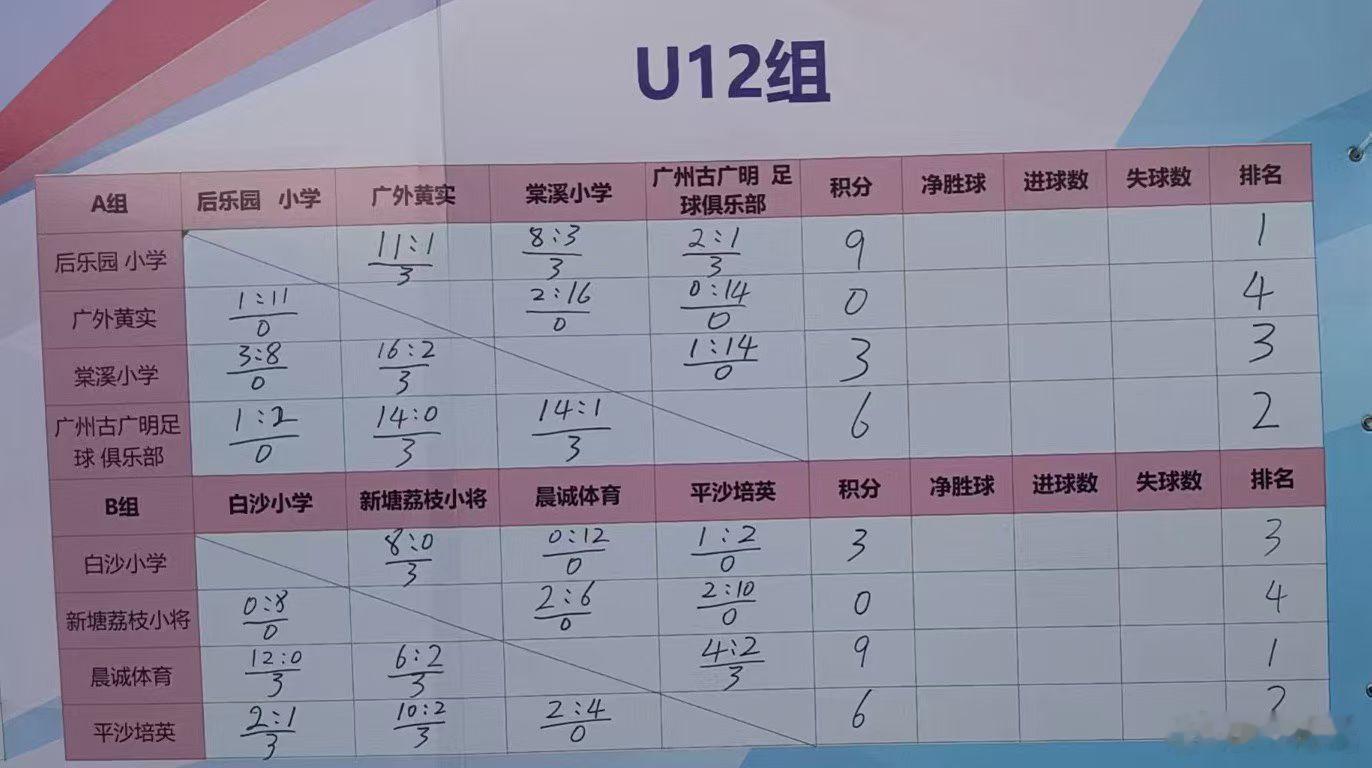 U12组
A组 后乐园 小学 广外黄实 棠溪小学 广州古广明 足球俱乐部 积分 净胜球 进球数 失球数 排名
后乐园 小学 11:1 3 8:3 3 2:1 3 9 1
广外黄实 1:11 0 2:16 0 0:14 0 0 4
棠溪小学 3:8 0 16:2 3 1:14 0 3 3
广州古广明足球 俱乐部 1:2 0 14:0 3 14:1 3 6 2
B组 白沙小学 新塘荔枝小将 晨诚体育 平沙培英 积分 净胜球 进球数 失球数 排名
白沙小学 8:0 3 0:12 0 1:2 0 3 3
新塘荔枝小将 0:8 0 2:6 0 2:10 0 0 4
晨诚体育 12:0 3 6:2 3 4:2 3 9 1
平沙培英 2:1 3 10:2 3 2:4 0 6 2